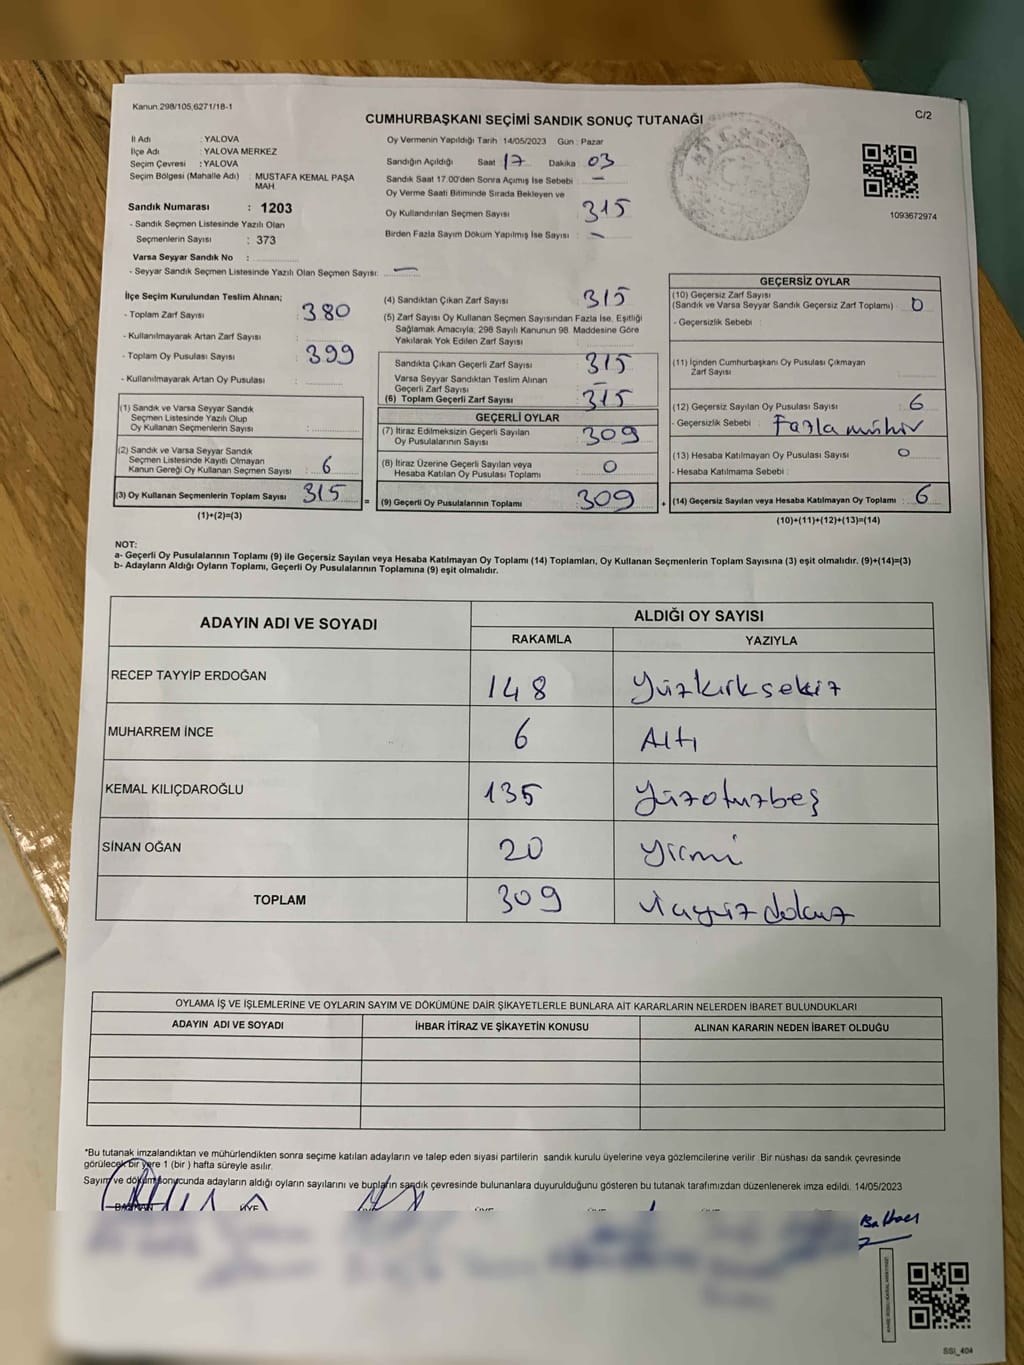 Kanun.298/105,6271/18-1
C/2
CUMHURBAŞKANI SEÇİMİ SANDIK SONUÇ TUTANAĞI
İl Adı : YALOVA
İlçe Adı : YALOVA MERKEZ
Seçim Çevresi : YALOVA
Seçim Bölgesi (Mahalle Adı) : MUSTAFA KEMAL PAŞA MAH.
Sandık Numarası : 1203
- Sandık Seçmen Listesinde Yazılı Olan
Seçmenlerin Sayısı : 373
Varsa Seyyar Sandık No :
- Seyyar Sandık Seçmen Listesinde Yazılı Olan Seçmen Sayısı: —
Oy Vermenin Yapıldığı Tarih : 14/05/2023 Gün : Pazar
Sandığın Açıldığı Saat : 17 Dakika : 03
Sandık Saat 17.00'den Sonra Açımış İse Sebebi : —
Oy Verme Saati Bitiminde Sırada Bekleyen ve
Oy Kullandırılan Seçmen Sayısı : 315
Birden Fazla Sayım Döküm Yapılmış İse Sayısı : —
1093672974
İlçe Seçim Kurulundan Teslim Alınan;
- Toplam Zarf Sayısı : 380
- Kullanılmayarak Artan Zarf Sayısı :
- Toplam Oy Pusulası Sayısı : 399
- Kullanılmayarak Artan Oy Pusulası :
(1) Sandık ve Varsa Seyyar Sandık
Seçmen Listesinde Yazılı Olup
Oy Kullanan Seçmenlerin Sayısı :
(2) Sandık ve Varsa Seyyar Sandık
Seçmen Listesinde Kayıtlı Olmayan
Kanun Gereği Oy Kullanan Seçmen Sayısı : 6
(3) Oy Kullanan Seçmenlerin Toplam Sayısı : 315 =
(1)+(2)=(3)
(4) Sandıktan Çıkan Zarf Sayısı : 315
(5) Zarf Sayısı Oy Kullanan Seçmen Sayısından Fazla İse, Eşitliği
Sağlamak Amacıyla; 298 Sayılı Kanunun 98. Maddesine Göre
Yakılarak Yok Edilen Zarf Sayısı :
Sandıkta Çıkan Geçerli Zarf Sayısı : 315
Varsa Seyyar Sandıktan Teslim Alınan
Geçerli Zarf Sayısı : —
(6) Toplam Geçerli Zarf Sayısı : 315
GEÇERLİ OYLAR
(7) İtiraz Edilmeksizin Geçerli Sayılan
Oy Pusulalarının Sayısı : 309
(8) İtiraz Üzerine Geçerli Sayılan veya
Hesaba Katılan Oy Pusulası Toplamı : 0
(9) Geçerli Oy Pusulalarının Toplamı : 309 +
GEÇERSİZ OYLAR
(10) Geçersiz Zarf Sayısı
(Sandık ve Varsa Seyyar Sandık Geçersiz Zarf Toplamı) : 0
- Geçersizlik Sebebi :
(11) İçinden Cumhurbaşkanı Oy Pusulası Çıkmayan
Zarf Sayısı
(12) Geçersiz Sayılan Oy Pusulası Sayısı : 6
- Geçersizlik Sebebi : Fazla mühür
(13) Hesaba Katılmayan Oy Pusulası Sayısı : 0
- Hesaba Katılmama Sebebi :
(14) Geçersiz Sayılan veya Hesaba Katılmayan Oy Toplamı : 6
(10)+(11)+(12)+(13)=(14)
NOT:
a- Geçerli Oy Pusulalarının Toplamı (9) ile Geçersiz Sayılan veya Hesaba Katılmayan Oy Toplamı (14) Toplamları, Oy Kullanan Seçmenlerin Toplam Sayısına (3) eşit olmalıdır. (9)+(14)=(3)
b- Adayların Aldığı Oyların Toplamı, Geçerli Oy Pusulalarının Toplamına (9) eşit olmalıdır.
ADAYIN ADI VE SOYADI ALDIĞI OY SAYISI
RAKAMLA YAZIYLA
RECEP TAYYİP ERDOĞAN 148 Yüzkırksekiz
MUHARREM İNCE 6 Altı
KEMAL KILIÇDAROĞLU 135 Yüzotuzbeş
SİNAN OĞAN 20 Yirmi
TOPLAM 309 üçyüzdokuz
OYLAMA İŞ VE İŞLEMLERİNE VE OYLARIN SAYIM VE DÖKÜMÜNE DAİR ŞİKAYETLERLE BUNLARA AİT KARARLARIN NELERDEN İBARET BULUNDUKLARI
ADAYIN ADI VE SOYADI İHBAR İTİRAZ VE ŞİKAYETİN KONUSU ALINAN KARARIN NEDEN İBARET OLDUĞU
*Bu tutanak imzalandıktan ve mühürlendikten sonra seçime katılan adayların ve talep eden siyasi partilerin sandık kurulu üyelerine veya gözlemcilerine verilir. Bir nüshası da sandık çevresinde
görülecek bir yere 1 (bir ) hafta süreyle asılır.
Sayım ve döküm sonucunda adayların aldığı oyların sayılarını ve bunların sandık çevresinde bulunanlara duyurulduğunu gösteren bu tutanak tarafımızdan düzenlenerek imza edildi. 14/05/2023
BAŞKAN ÜYE
SSİ_404